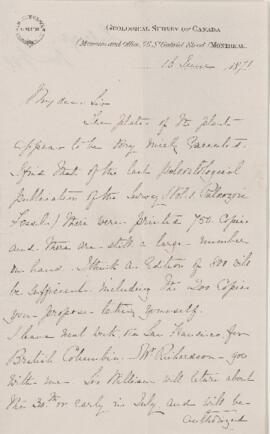 GEOLOGICAL SURVEY OF CANADA
(Museum and Office, 76 St Gabriel Street) MONTREAL.
13 June 1871
My dear Sir
The plates of the plants
appear to be very nicely executed.
I find that of the last palaeontological
publication of the Survey (Vol. 1. Palaeozoic
Fossils) there were printed 750 copies
and there are still a large number
on hand. I think an Edition of 500 will
be sufficient including the 200 copies
you propose taking yourself.
I leave next week via San Francisco for
British Columbia. Mr Richardson goes
with me. Sir William will return about
the 30th or early in July and will be
authorized